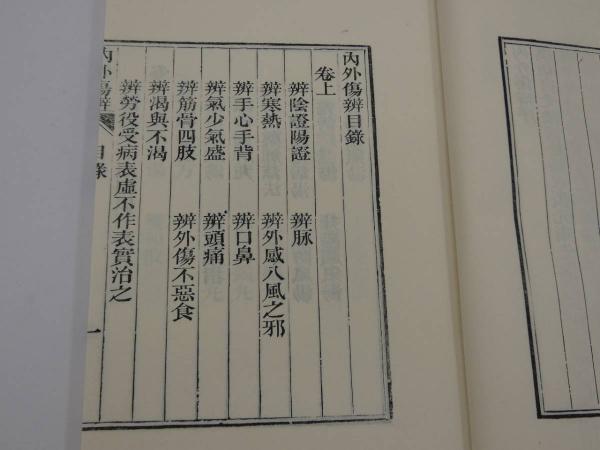 內外傷辨目錄
卷上
辨陰證陽證 辨脉
辨寒熱 辨外感八風之邪
辨手心手背 辨口鼻
辨氣少氣盛 辨頭痛
辨筋骨四肢 辨外傷不惡食
辨渴與不渴
辨勞役受病表虛不作表實治之
內外傷辨 目錄 一